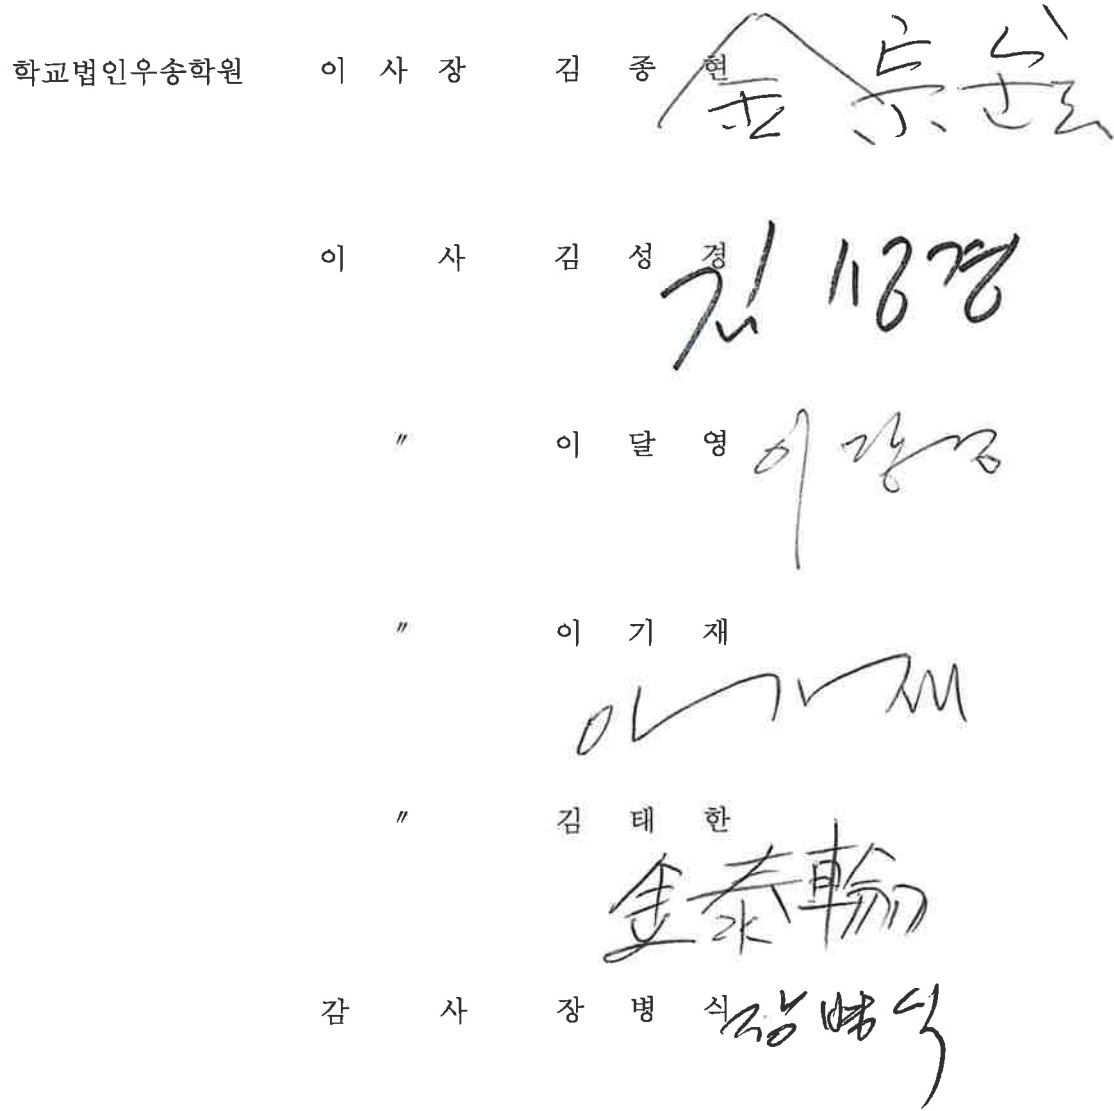 학교법인우송학원 이 사 장 김 종 현 金
이 사 김 성 경 김성경
〃 이 달 영 이달영
〃 이 기 재 이기재
〃 김 태 한 金泰翰
감 사 장 병 식 장병식